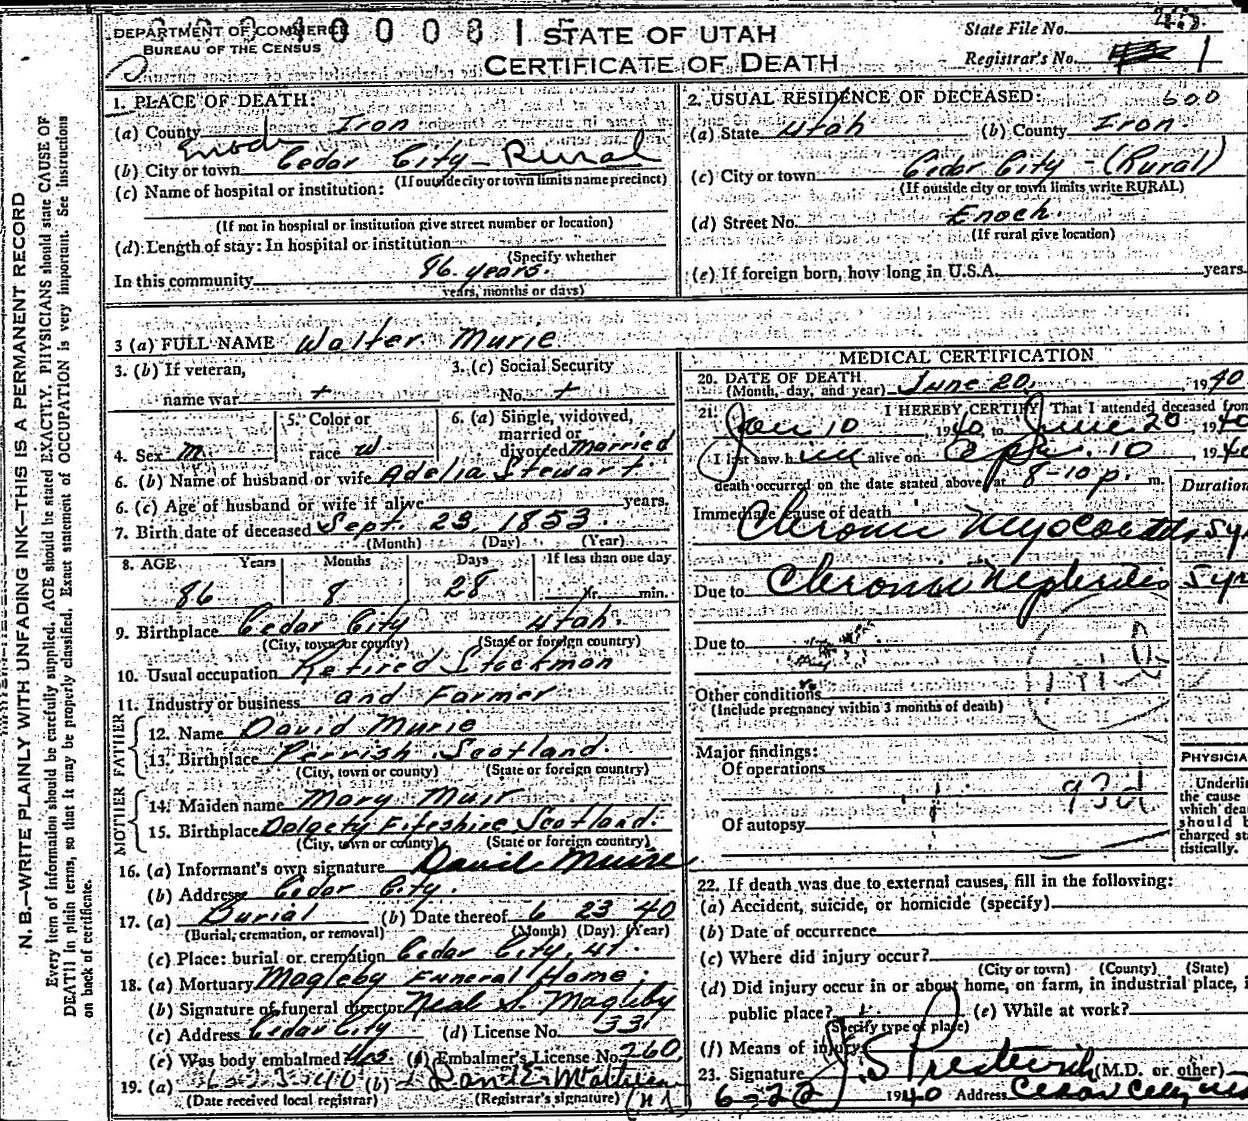 DEPARTMENT OF COMMERCE
BUREAU OF THE CENSUS
STATE OF UTAH
CERTIFICATE OF DEATH
State File No. 45
Registrar's No. 1
1. PLACE OF DEATH:
(a) County Iron
Enoch
(b) City or town Cedar City - Rural
(If outside city or town limits name precinct)
(c) Name of hospital or institution:
(If not in hospital or institution give street number or location)
(d) Length of stay: In hospital or institution
(Specify whether
In this community 86 years.
years, months or days)
2. USUAL RESIDENCE OF DECEASED: 600
(a) State Utah (b) County Iron.
(c) City or town Cedar City - (Rural)
(If outside city or town limits write RURAL)
(d) Street No. Enoch.
(If rural give location)
(e) If foreign born, how long in U.S.A. years.
3 (a) FULL NAME Walter Murie
3. (b) If veteran,
name war +
3. (c) Social Security
No. +
4. Sex m.
5. Color or
race w.
6. (a) Single, widowed,
married or
divorced Married
6. (b) Name of husband or wife Adelia Stewart.
6. (c) Age of husband or wife if alive years.
7. Birth date of deceased Sept. 23, 1853.
(Month) (Day) (Year)
8. AGE Years Months Days If less than one day
86 8 28 hr. min.
9. Birthplace Cedar City Utah.
(City, town or county) (State or foreign country)
10. Usual occupation Retired Stockman
11. Industry or business and Farmer
FATHER
12. Name David Murie
13. Birthplace Perrish Scotland.
(City, town or county) (State or foreign country)
MOTHER
14. Maiden name Mary Muir
15. Birthplace Dolgety Fifeshire Scotland.
(City, town or county) (State or foreign country)
16. (a) Informant's own signature David Murie
(b) Address Cedar City.
17. (a) Burial (b) Date thereof 6 23 40
(Burial, cremation, or removal) (Month) (Day) (Year)
(c) Place: burial or cremation Cedar City, Ut.
18. (a) Mortuary Magleby Funeral Home.
(b) Signature of funeral director Neal S. Magleby
(c) Address Cedar City (d) License No. 33
(e) Was body embalmed Yes. (f) Embalmer's License No. 260
19. (a) 6-23-40 (b)
(Date received local registrar) (Registrar's signature)
MEDICAL CERTIFICATION
20. DATE OF DEATH
(Month, day, and year) June 20, 1940
21. I HEREBY CERTIFY That I attended deceased from
Jan 10, 1940, to June 20, 1940
I last saw him alive on Apr. 10, 1940
death occurred on the date stated above, at 8-10 p. m.
Duration
Immediate cause of death
Chronic Myocarditis 5 yr
Due to Chronic Nephritis 5 yr
Due to
Other conditions
(Include pregnancy within 3 months of death)
Major findings:
Of operations
93d
Of autopsy
PHYSICIA
Underlin
the cause
which dea
should b
charged st
tistically.
22. If death was due to external causes, fill in the following:
(a) Accident, suicide, or homicide (specify)
(b) Date of occurrence
(c) Where did injury occur?
(City or town) (County) (State)
(d) Did injury occur in or about home, on farm, in industrial place, i
public place? (e) While at work?
(Specify type of place)
(f) Means of injury
23. Signature (M.D. or other)
6-22 1940 Address Cedar City
N. B.—WRITE PLAINLY WITH UNFADING INK—THIS IS A PERMANENT RECORD
Every item of information should be carefully supplied. AGE should be stated EXACTLY. PHYSICIANS should state CAUSE OF
DEATH in plain terms, so that it may be properly classified. Exact statement of OCCUPATION is very important. See Instructions
on back of certificate.